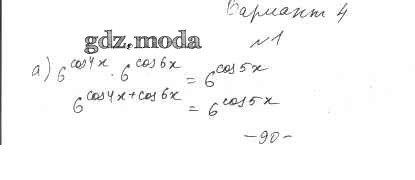 Вариант 4
gdz.moda
№1
а) 6^cos4x · 6^cos6x = 6^cos5x
6^cos4x+cos6x = 6^cos5x
-90-